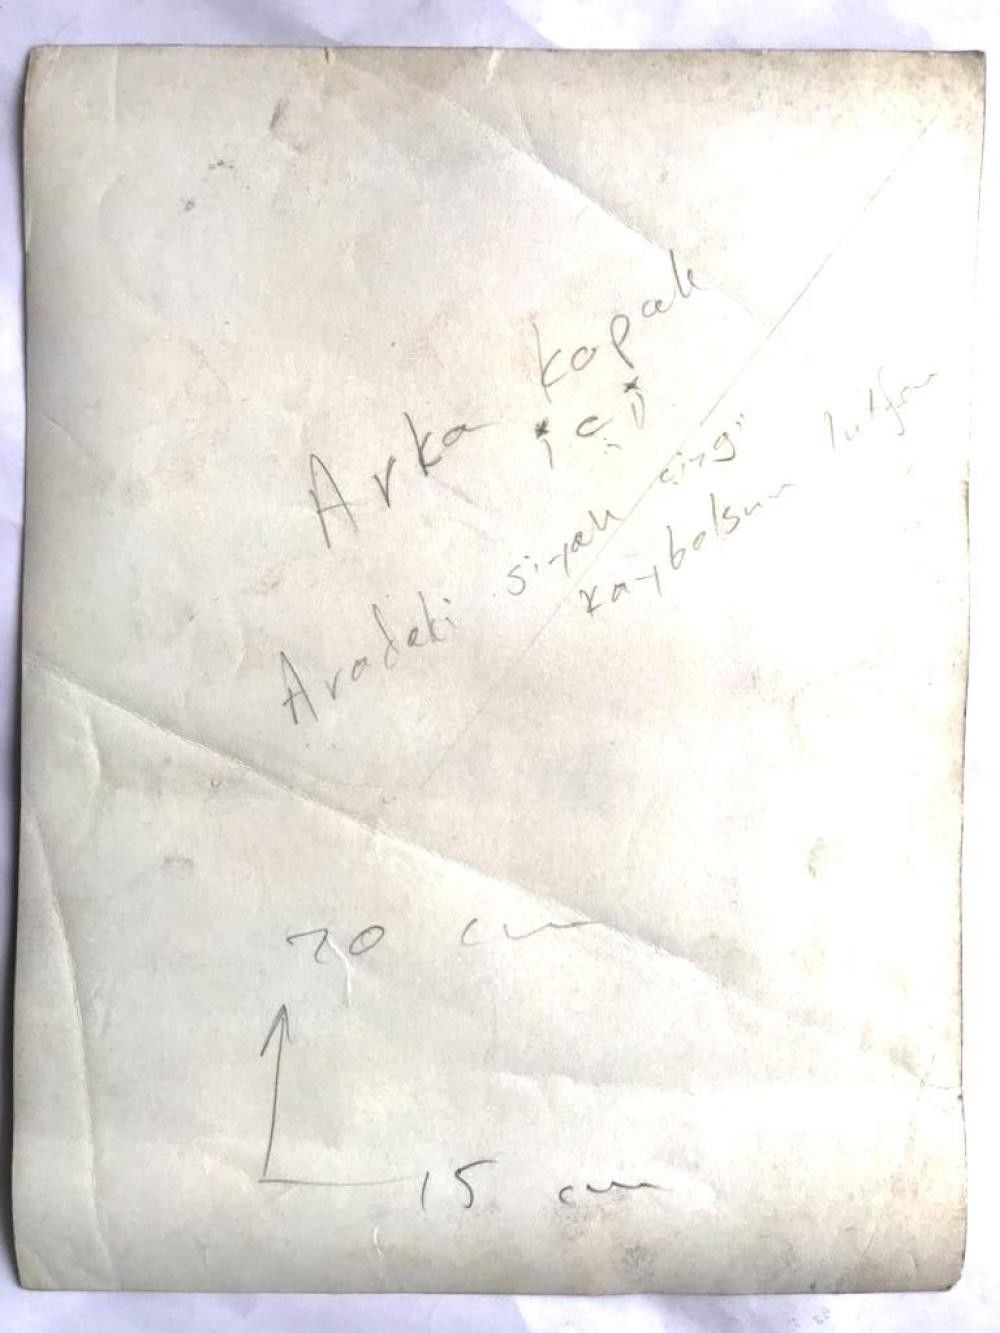 Arka kapak
içi
Aradaki siyah çizgi
kaybolsun lütfen
20 cm
15 cm